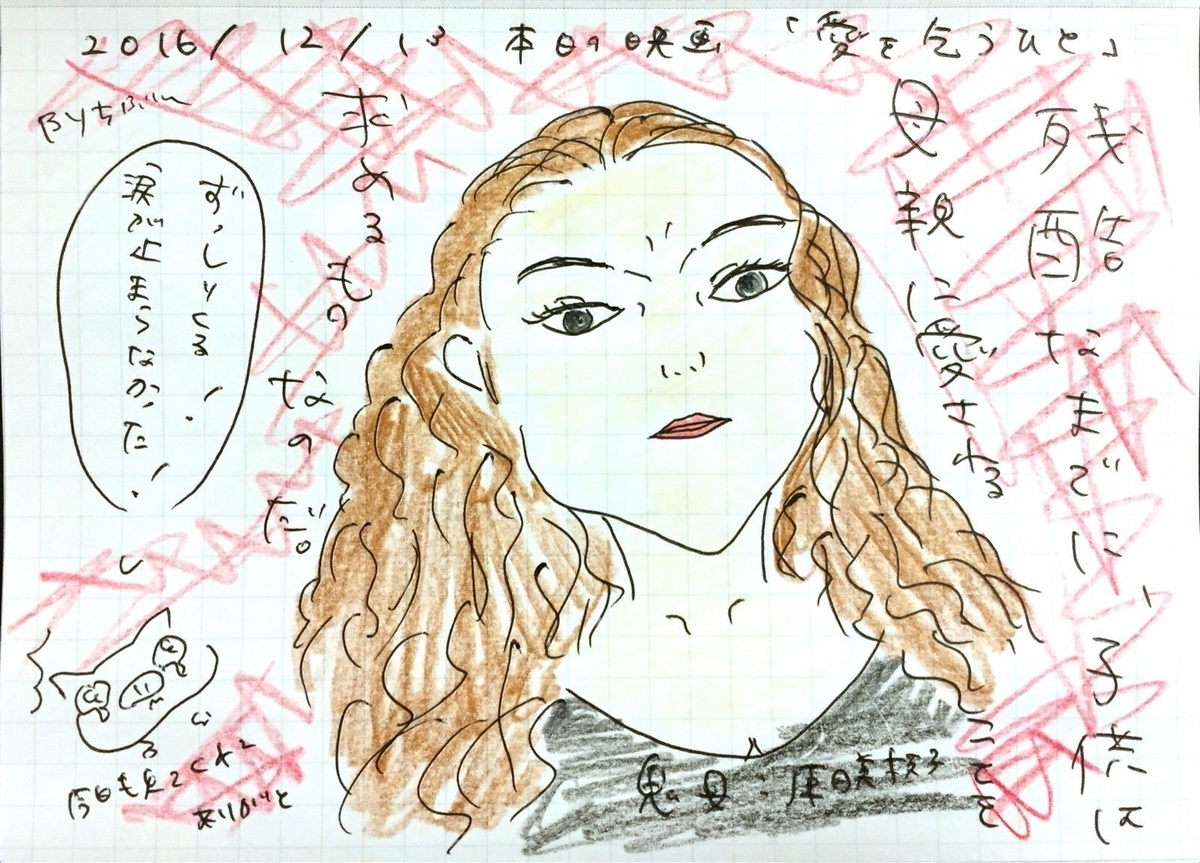 2016/12/13 本日の映画 「愛を乞うひと」
残酷なまでに、子供は
母親に愛される
ことを
求めるもの
なのだ。
By ちびぃ
ずっしりくる!
涙が止まらなかった!
鬼母:原田美枝子
今日も見てくれて
ありがと